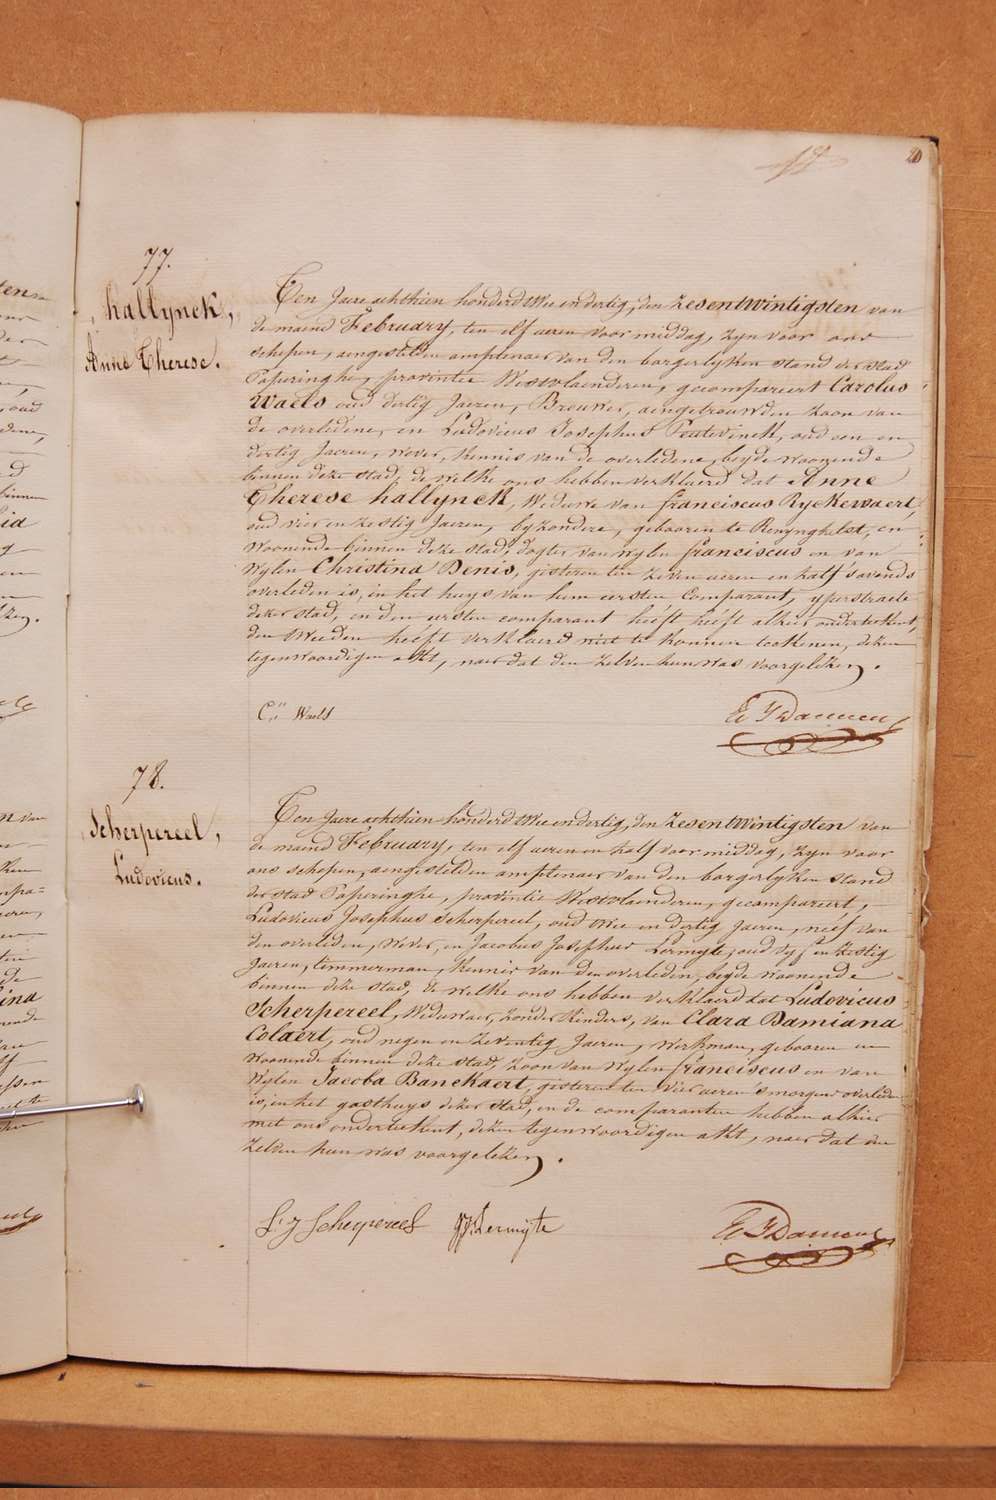 17
20
77.
hallynck,
Anne Therese.
Ten Jaere achthien honderd twee en dertig, den Zesentwintigsten van
de maend February, ten elf ueren voor middag, zyn voor ons
schepen, aengestelden amptenaer van den borgerlyken stand der stad
Poperinghe, provintie Westvlaenderen, gecompareert Carolus
Waels oud dertig Jaeren, Brouwer, aengetrouwden zoon van
de overledene, en Ludovicus Josephus Peutevinck, oud een en
dertig Jaeren, wever, kennis van de overledene, beyde woonende
binnen deze stad, de welke ons hebben verklaerd dat Anne
Therese hallynck, Weduwe van franciscus Ryckewaert,
oud vier en zestig Jaeren, byzondere, gebooren te Renynghelst, en
woonende binnen deze stad, dogter van wylen franciscus en van
wylen Christina Denis, gisteren ten zeven ueren en half 's avonds
overleden is, in het huys van hem eersten Comparant, yperstraete
dezer stad, en den eersten comparant heeft heeft alhier onderteekent,
den tweeden heeft verklaerd niet te konnen teekenen, dezen
tegenwoordigen akt, naer dat den zelven hun was voorgelezen.
C.s Waels
E I Damien
78.
Scherpereel,
Ludovicus.
Ten Jaere achthien honderd twee en dertig, den Zesentwintigsten van
de maend February, ten elf ueren en half voor middag, zyn voor
ons schepen, aengestelden amptenaer van den borgerlyken stand
der stad Poperinghe, provintie Westvlaenderen, gecompareert,
Ludovicus Josephus Scherpereel, oud twee en dertig Jaeren, neef van
den overleden, Wever, en Jacobus Josephus Lermyte, oud vyf en zestig
Jaeren, timmerman, kennis van den overleden, beyde woonende
binnen deze stad, de welke ons hebben verklaerd dat Ludovicus
Scherpereel, Weduwaer, zonder kinders, van Clara Damiana
Colaert, oud negen en zeventig Jaeren, werkman, gebooren en
woonende binnen deze stad, zoon van wylen franciscus en van
wylen Jacoba Banckaert, gisteren ten vier ueren 's morgens overleden
is, in het gasthuys dezer stad, en de comparanten hebben alhier
met ons onderteekent, dezen tegenwoordigen akt, naer dat den
zelven hun was voorgelezen.
L: J Scherpereel
JJ: Lermijte
E I Damien